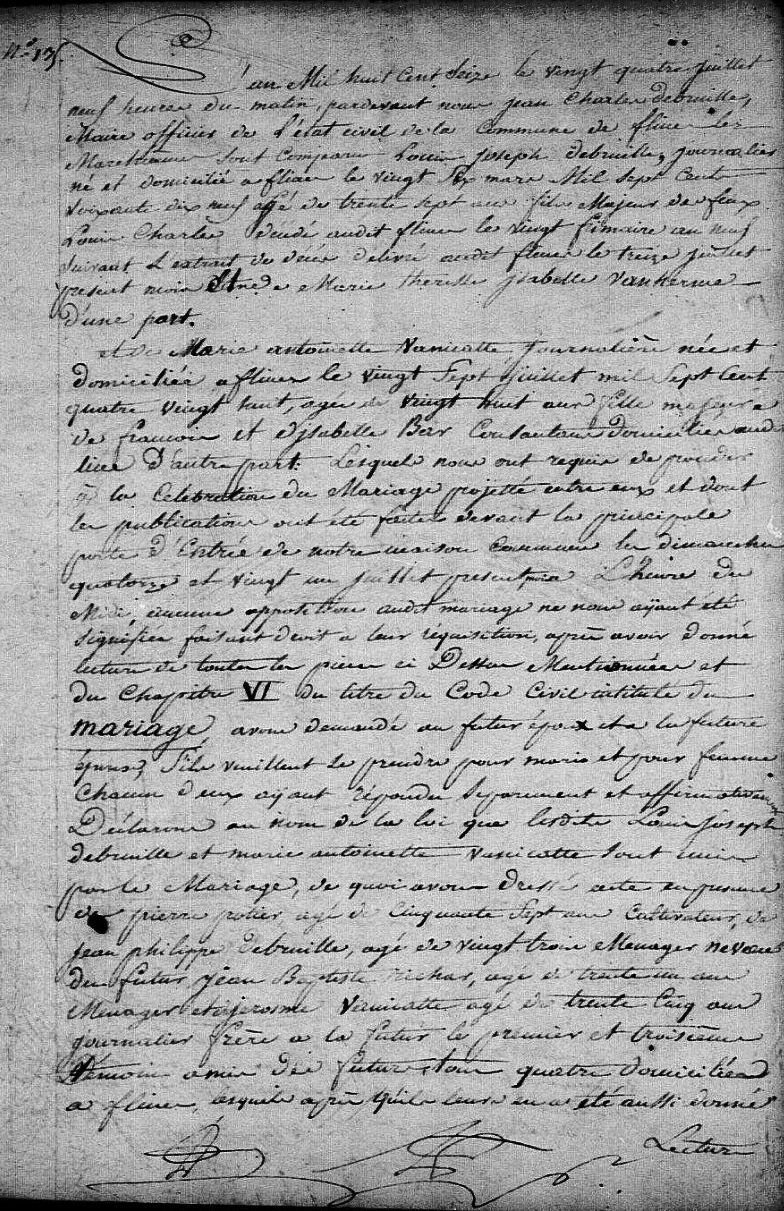 N.° 13.
L'an Mil huit Cent Seize le vingt quatre juillet
neuf heures du matin, pardevant nous jean Charles Debruille,
Maire officier de L'état civil de la Commune de flines les
Marchiennes Sont Comparu Louis joseph debruille, journalier
né et domicilié a flines le vingt Six mars Mil Sept Cent
Soixante dix neuf agé de trente sept ans fils Majeur de feux
Louis Charles décédé audit flines le vingt frimaire an neuf
suivant L'extrait de décès délivré audit flines le treize juillet
present mois Et de Marie theresse ysabelle
d'une part.
et de Marie antoinette Vanicatte journalière née et
domiciliée a flines le vingt Sept juillet mil Sept Cent
quatre vingt huit, agée de vingt huit ans fille majeure
de francois et d'ysabelle Bar Consentans domiciliés audit
lieu D'autre part. Lesquels nous ont requis de proceder
a la Celebration du Mariage projetté entre eux et dont
les publications ont été faites devant la principale
porte d'Entrée de notre maison Commune les dimanches
quatorze et vingt un juillet present mois L'heure de
Midi, aucune opposition audit mariage ne nous ayant été
Signifiée faisant droit a leur réquisition, après avoir donné
lecture de toutes les pieces ci Dessus Mentionnées et
du Chapitre VI du titre du Code Civil intitulé du
mariage, avons demandé au futur époux et a la future
épouse, S'ils veuillent Se prendre pour maris et pour femme
Chacun d'eux ayant répondu Séparement et affirmativement
Déclarons au nom de la loi que lesdits Louis joseph
debruille et marie antoinette vanicatte Sont unis
par le Mariage, de quoi avons dressé acte en presence
de pierre potier agé de Cinquante Sept ans Cultivateur, de
jean philippe Debruille, agé de vingt trois Menager neveux
du futur, jean Baptiste Richar, agé de trente un ans
Menager et jerosme Vanicatte agé de trente Cinq ans
journalier frère a la future le premier et troisième
témoins amis des futurs, tous quatre domiciliés
a flines, lesquels après qu'ils leurs en a été aussi donné
Lecture